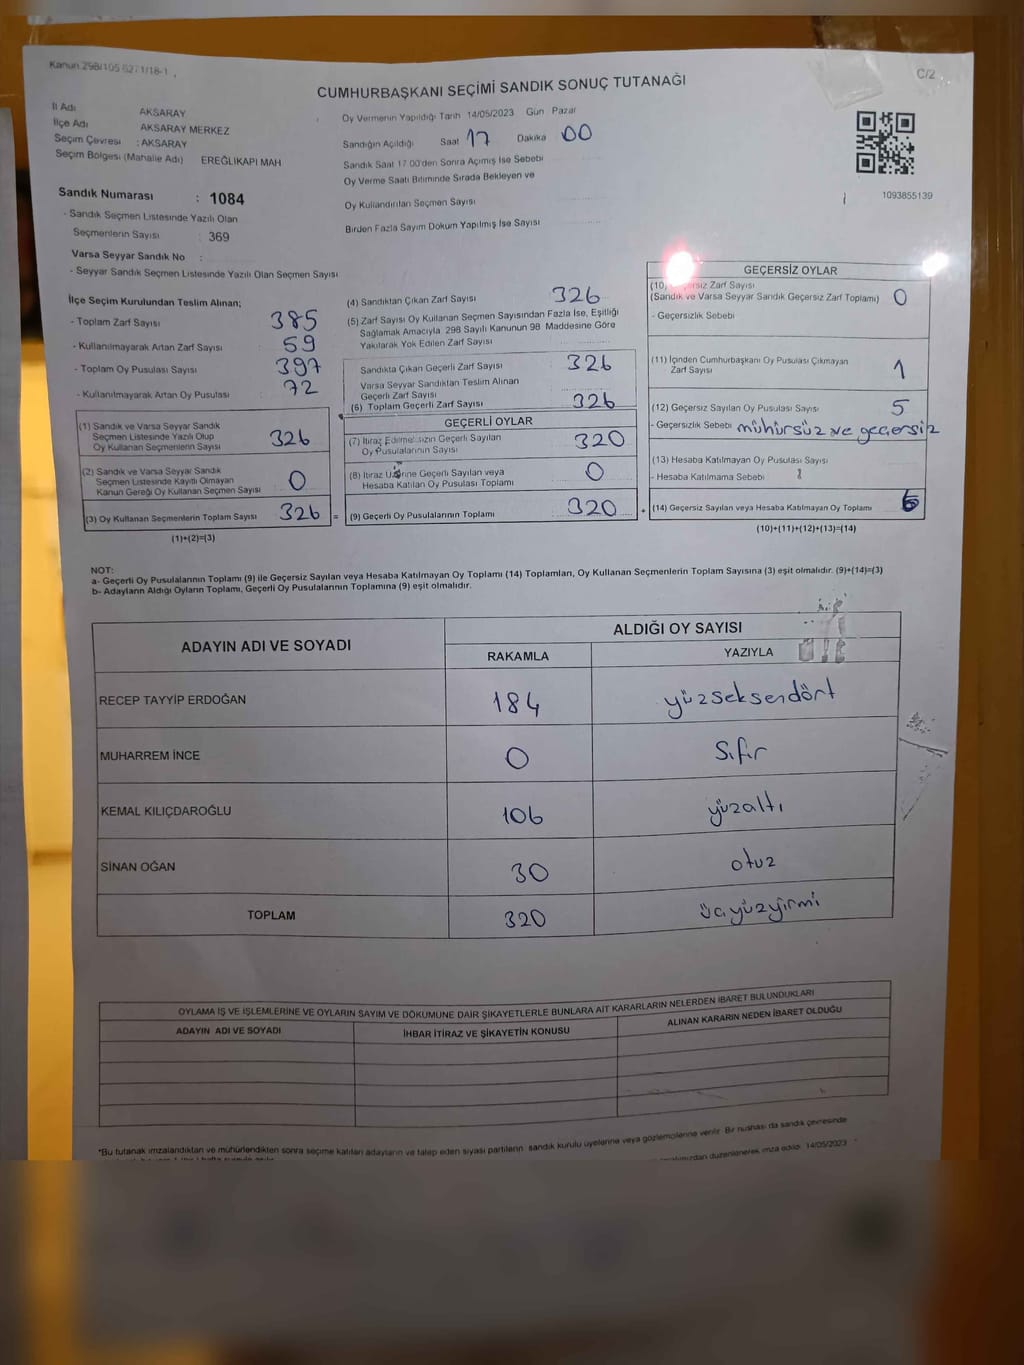 Kanun 298/105 6271/18-1
C/2
CUMHURBAŞKANI SEÇİMİ SANDIK SONUÇ TUTANAĞI
İl Adı AKSARAY
İlçe Adı AKSARAY MERKEZ
Seçim Çevresi : AKSARAY
Seçim Bölgesi (Mahalle Adı) EREĞLİKAPI MAH
Sandık Numarası : 1084
- Sandık Seçmen Listesinde Yazılı Olan
Seçmenlerin Sayısı : 369
Varsa Seyyar Sandık No :
- Seyyar Sandık Seçmen Listesinde Yazılı Olan Seçmen Sayısı
Oy Vermenin Yapıldığı Tarih 14/05/2023 Gün Pazar
Sandığın Açıldığı Saat 17 Dakika 00
Sandık Saat 17.00'den Sonra Açımış İse Sebebi
Oy Verme Saati Bitiminde Sırada Bekleyen ve
Oy Kullandırılan Seçmen Sayısı
Birden Fazla Sayım Döküm Yapılmış İse Sayısı
1093855139
İlçe Seçim Kurulundan Teslim Alınan;
- Toplam Zarf Sayısı 385
- Kullanılmayarak Artan Zarf Sayısı 59
- Toplam Oy Pusulası Sayısı 397
- Kullanılmayarak Artan Oy Pusulası 72
(1) Sandık ve Varsa Seyyar Sandık
Seçmen Listesinde Yazılı Olup
Oy Kullanan Seçmenlerin Sayısı 326
(2) Sandık ve Varsa Seyyar Sandık
Seçmen Listesinde Kayıtlı Olmayan
Kanun Gereği Oy Kullanan Seçmen Sayısı 0
(3) Oy Kullanan Seçmenlerin Toplam Sayısı 326 =
(1)+(2)=(3)
(4) Sandıktan Çıkan Zarf Sayısı 326
(5) Zarf Sayısı Oy Kullanan Seçmen Sayısından Fazla İse, Eşitliği
Sağlamak Amacıyla 298 Sayılı Kanunun 98. Maddesine Göre
Yakılarak Yok Edilen Zarf Sayısı
Sandıkta Çıkan Geçerli Zarf Sayısı 326
Varsa Seyyar Sandıktan Teslim Alınan
Geçerli Zarf Sayısı
(6) Toplam Geçerli Zarf Sayısı 326
GEÇERLİ OYLAR
(7) İtiraz Edilmeksizin Geçerli Sayılan
Oy Pusulalarının Sayısı 320
(8) İtiraz Üzerine Geçerli Sayılan veya
Hesaba Katılan Oy Pusulası Toplamı 0
(9) Geçerli Oy Pusulalarının Toplamı 320 +
GEÇERSİZ OYLAR
(10) Zarf Sayısı
(Sandık ve Varsa Seyyar Sandık Geçersiz Zarf Toplamı) 0
- Geçersizlik Sebebi
(11) İçinden Cumhurbaşkanı Oy Pusulası Çıkmayan
Zarf Sayısı 1
(12) Geçersiz Sayılan Oy Pusulası Sayısı 5
- Geçersizlik Sebebi mühürsüz ve geçersiz
(13) Hesaba Katılmayan Oy Pusulası Sayısı
- Hesaba Katılmama Sebebi
(14) Geçersiz Sayılan veya Hesaba Katılmayan Oy Toplamı 6
(10)+(11)+(12)+(13)=(14)
NOT:
a- Geçerli Oy Pusulalarının Toplamı (9) ile Geçersiz Sayılan veya Hesaba Katılmayan Oy Toplamı (14) Toplamları, Oy Kullanan Seçmenlerin Toplam Sayısına (3) eşit olmalıdır. (9)+(14)=(3)
b- Adayların Aldığı Oyların Toplamı, Geçerli Oy Pusulalarının Toplamına (9) eşit olmalıdır.
ADAYIN ADI VE SOYADI
ALDIĞI OY SAYISI
RAKAMLA YAZIYLA
RECEP TAYYİP ERDOĞAN 184 yüzseksendört
MUHARREM İNCE 0 Sıfır
KEMAL KILIÇDAROĞLU 106 yüzaltı
SİNAN OĞAN 30 otuz
TOPLAM 320 üçyüzyirmi
OYLAMA İŞ VE İŞLEMLERİNE VE OYLARIN SAYIM VE DÖKÜMÜNE DAİR ŞİKAYETLERLE BUNLARA AİT KARARLARIN NELERDEN İBARET BULUNDUKLARI
ADAYIN ADI VE SOYADI İHBAR İTİRAZ VE ŞİKAYETİN KONUSU ALINAN KARARIN NEDEN İBARET OLDUĞU
*Bu tutanak imzalandıktan ve mühürlendikten sonra seçime katılan adayların ve talep eden siyasi partilerin sandık kurulu üyelerine veya gözlemcilerine verilir. Bir nüshası da sandık çevresinde
düzenlenerek imza edildi. 14/05/2023